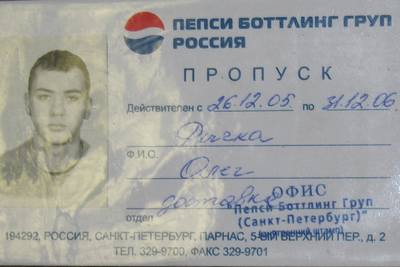 ПЕПСИ БОТТЛИНГ ГРУП
РОССИЯ
ПРОПУСК
Действителен с 26.12.05 по 31.12.06
Ф.И.О. Олег
доставка
отдел
ОФИС
Пепси Боттлинг Груп
(Санкт-Петербург)"
194292, РОССИЯ, САНКТ-ПЕТЕРБУРГ, ПАРНАС, 5-ЫЙ ВЕРХНИЙ ПЕР., д. 2
ТЕЛ. 329-9700, ФАКС 329-9701